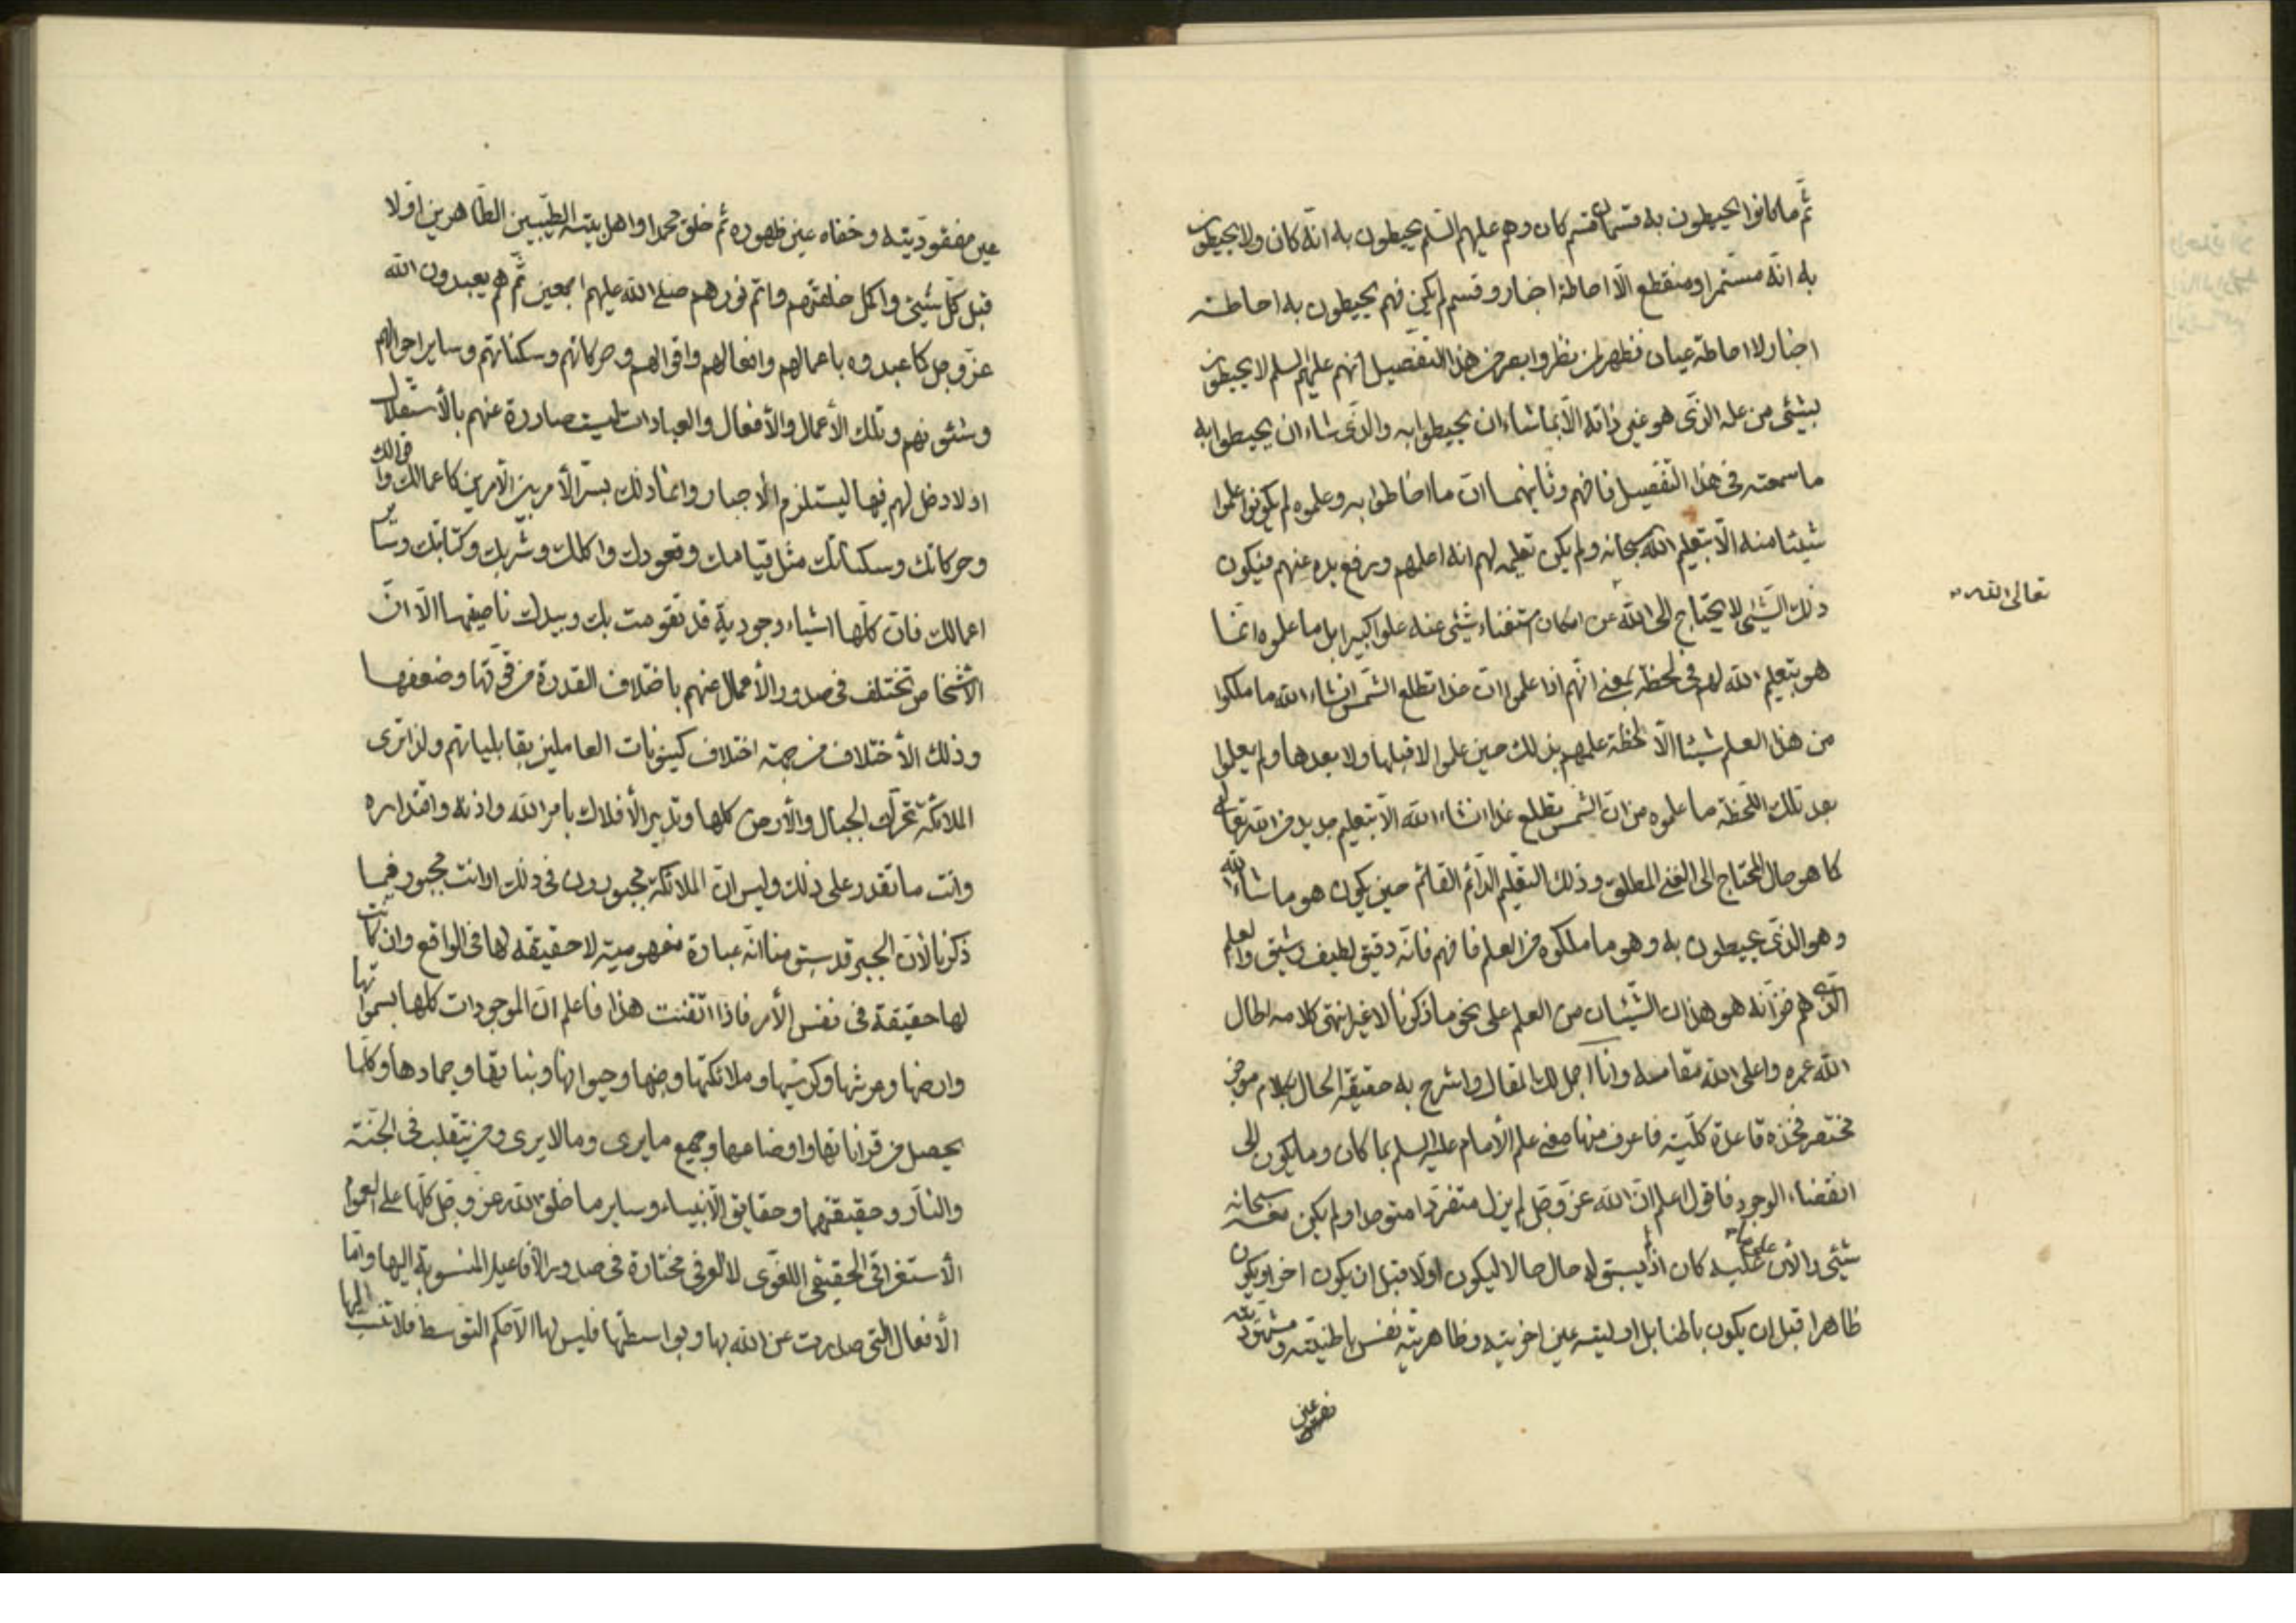 ثم ما كانوا يحيطون به قسمان قسم كان وهم عليهم السلم يحيطون به انه كان ولا يحيطون
به انه مستمرا ومنقطع الا احاطة اخبار وقسم لم يكن فهم يحيطون به احاطة
اخبار لا احاطة عيان فظهر لمن نظر وابصر من هذا التفصيل انهم عليهم السلم لا يحيطون
بشئ من علمه الذى هو عين ذاته الا بما شاء ان يحيطوا به والذى شاء ان يحيطوا به
ما سمعته فى هذا التفصيل فافهم وثانيهما ان ما احاطوا به وعلموه لم يكونوا علموا
شيئا منه الا بتعليم الله سبحانه ولم يكن تعليمه لهم انه اعلمهم ورفع يده عنهم فيكون
ذلك الشئ لا يحتاج الى الله عن امكان استغناء شئ عنه علوا كبيرا بل ما علموه انما
تعالى الله
هو بتعليم الله لهم فى لحظة بمعنى انهم اذا علموا ان غدا تطلع الشمس انشاء الله ما ملكوا
من هذا العلم شيئا الا لحظة علمهم بذلك حين علموا لا قبلها ولا بعدها ولم يعلموا
بعد تلك اللحظة ما علموه من ان الشمس تطلع غدا انشاء الله الا بتعليم جديد من الله تعالى
كما هو حال المحتاج الى الغنى المطلق وذلك التعليم الدائم القائم حين يكون هو ما شاء الله
وهو الذى يحيطون به وهو ما ملكوه من العلم فافهم فانه دقيق لطيف رشيق والعلم
الذى هم خزانه هو هذان الشيئان من العلم على نحو ما ذكرنا لا غير انتهى كلامه اطال
الله عمره واعلى الله مقامه وانا اجمل لك المقال واشرح به حقيقة الحال بكلام موجز
مختصر فخذه قاعدة كلية فاعرف منها معنى علم الأمام عليه السلم بما كان وما يكون الى
انقضاء الوجود فاقول اعلم ان الله عز وجل لم يزل متفردا متوحدا ولم يكن معه سبحانه
شئ والأن على ما عليه كان اذ لم يسبق له حال حالا ليكون اولا قبل ان يكون اخرا ويكون
ظاهرا قبل ان يكون باطنا بل اوليته عين اخريته وظاهريته نفس باطنيته ومشهوديته
عين مفقوديته وخفاه عين ظهوره ثم خلق محمدا واهل بيته الطيبين الطاهرين اولا
قبل كل شئ واكمل خلقتهم واتم نورهم صلى الله عليهم اجمعين ثم هم يعبدون الله
عز وجل كما عبدوه باعمالهم وافعالهم واقوالهم وحركاتهم وسكناتهم وساير احوالهم
وشئونهم وتلك الأعمال والأفعال والعبادات ليست صادرة عنهم بالأستقلال
اولا دخل لهم فيها ليستلزم الأجبار وانما ذلك بسر الأمر بين الأمرين كاعمالك واقوالك
وحركاتك وسكناتك مثل قيامك وقعودك واكلك وشربك وكتابتك وساير
اعمالك فان كلها اشياء وجودية قد تقومت بك وبيدك ناصيتها الا ان
الأشخاص تختلف فى صدور الأعمال عنهم باختلاف القدرة من قوتها وضعفها
وذلك الأختلاف من جهة اختلاف كينونات العاملين بقابلياتهم ولذا ترى
الملائكة تحرك الجبال والأرض كلها وتدير الأفلاك بامر الله واذنه واقتداره
وانت ما تقدر على ذلك وليس ان الملائكة مجبورون فى ذلك او انت مجبور فيما
ذكرنا لأن الجبر قد سبق منا انه عبارة مفهومية لا حقيقة لها فى الواقع وان كانت
لها حقيقة فى نفس الأمر فاذا اتقنت هذا فاعلم ان الموجودات كلها بسمواتها
وارضها وعرشها وكرسيها وملائكتها وجنها وحيوانها ونباتها وجمادها وكلما
يحصل من قراناتها واوضاعها وجميع ما يرى وما لا يرى ومن يتقلب فى الجنة
والنار وحقيقتهما وحقايق الأنبياء وساير ما خلق الله عز وجل كلها على العموم
الأستغراقى الحقيقى اللغوى لا العرفى مختارة فى صدور الأفاعيل المنسوبة اليها واما
الأفعال التى صدرت عن الله بها وبواسطتها فليس لها الا حكم التوسط فلا تنسب اليها